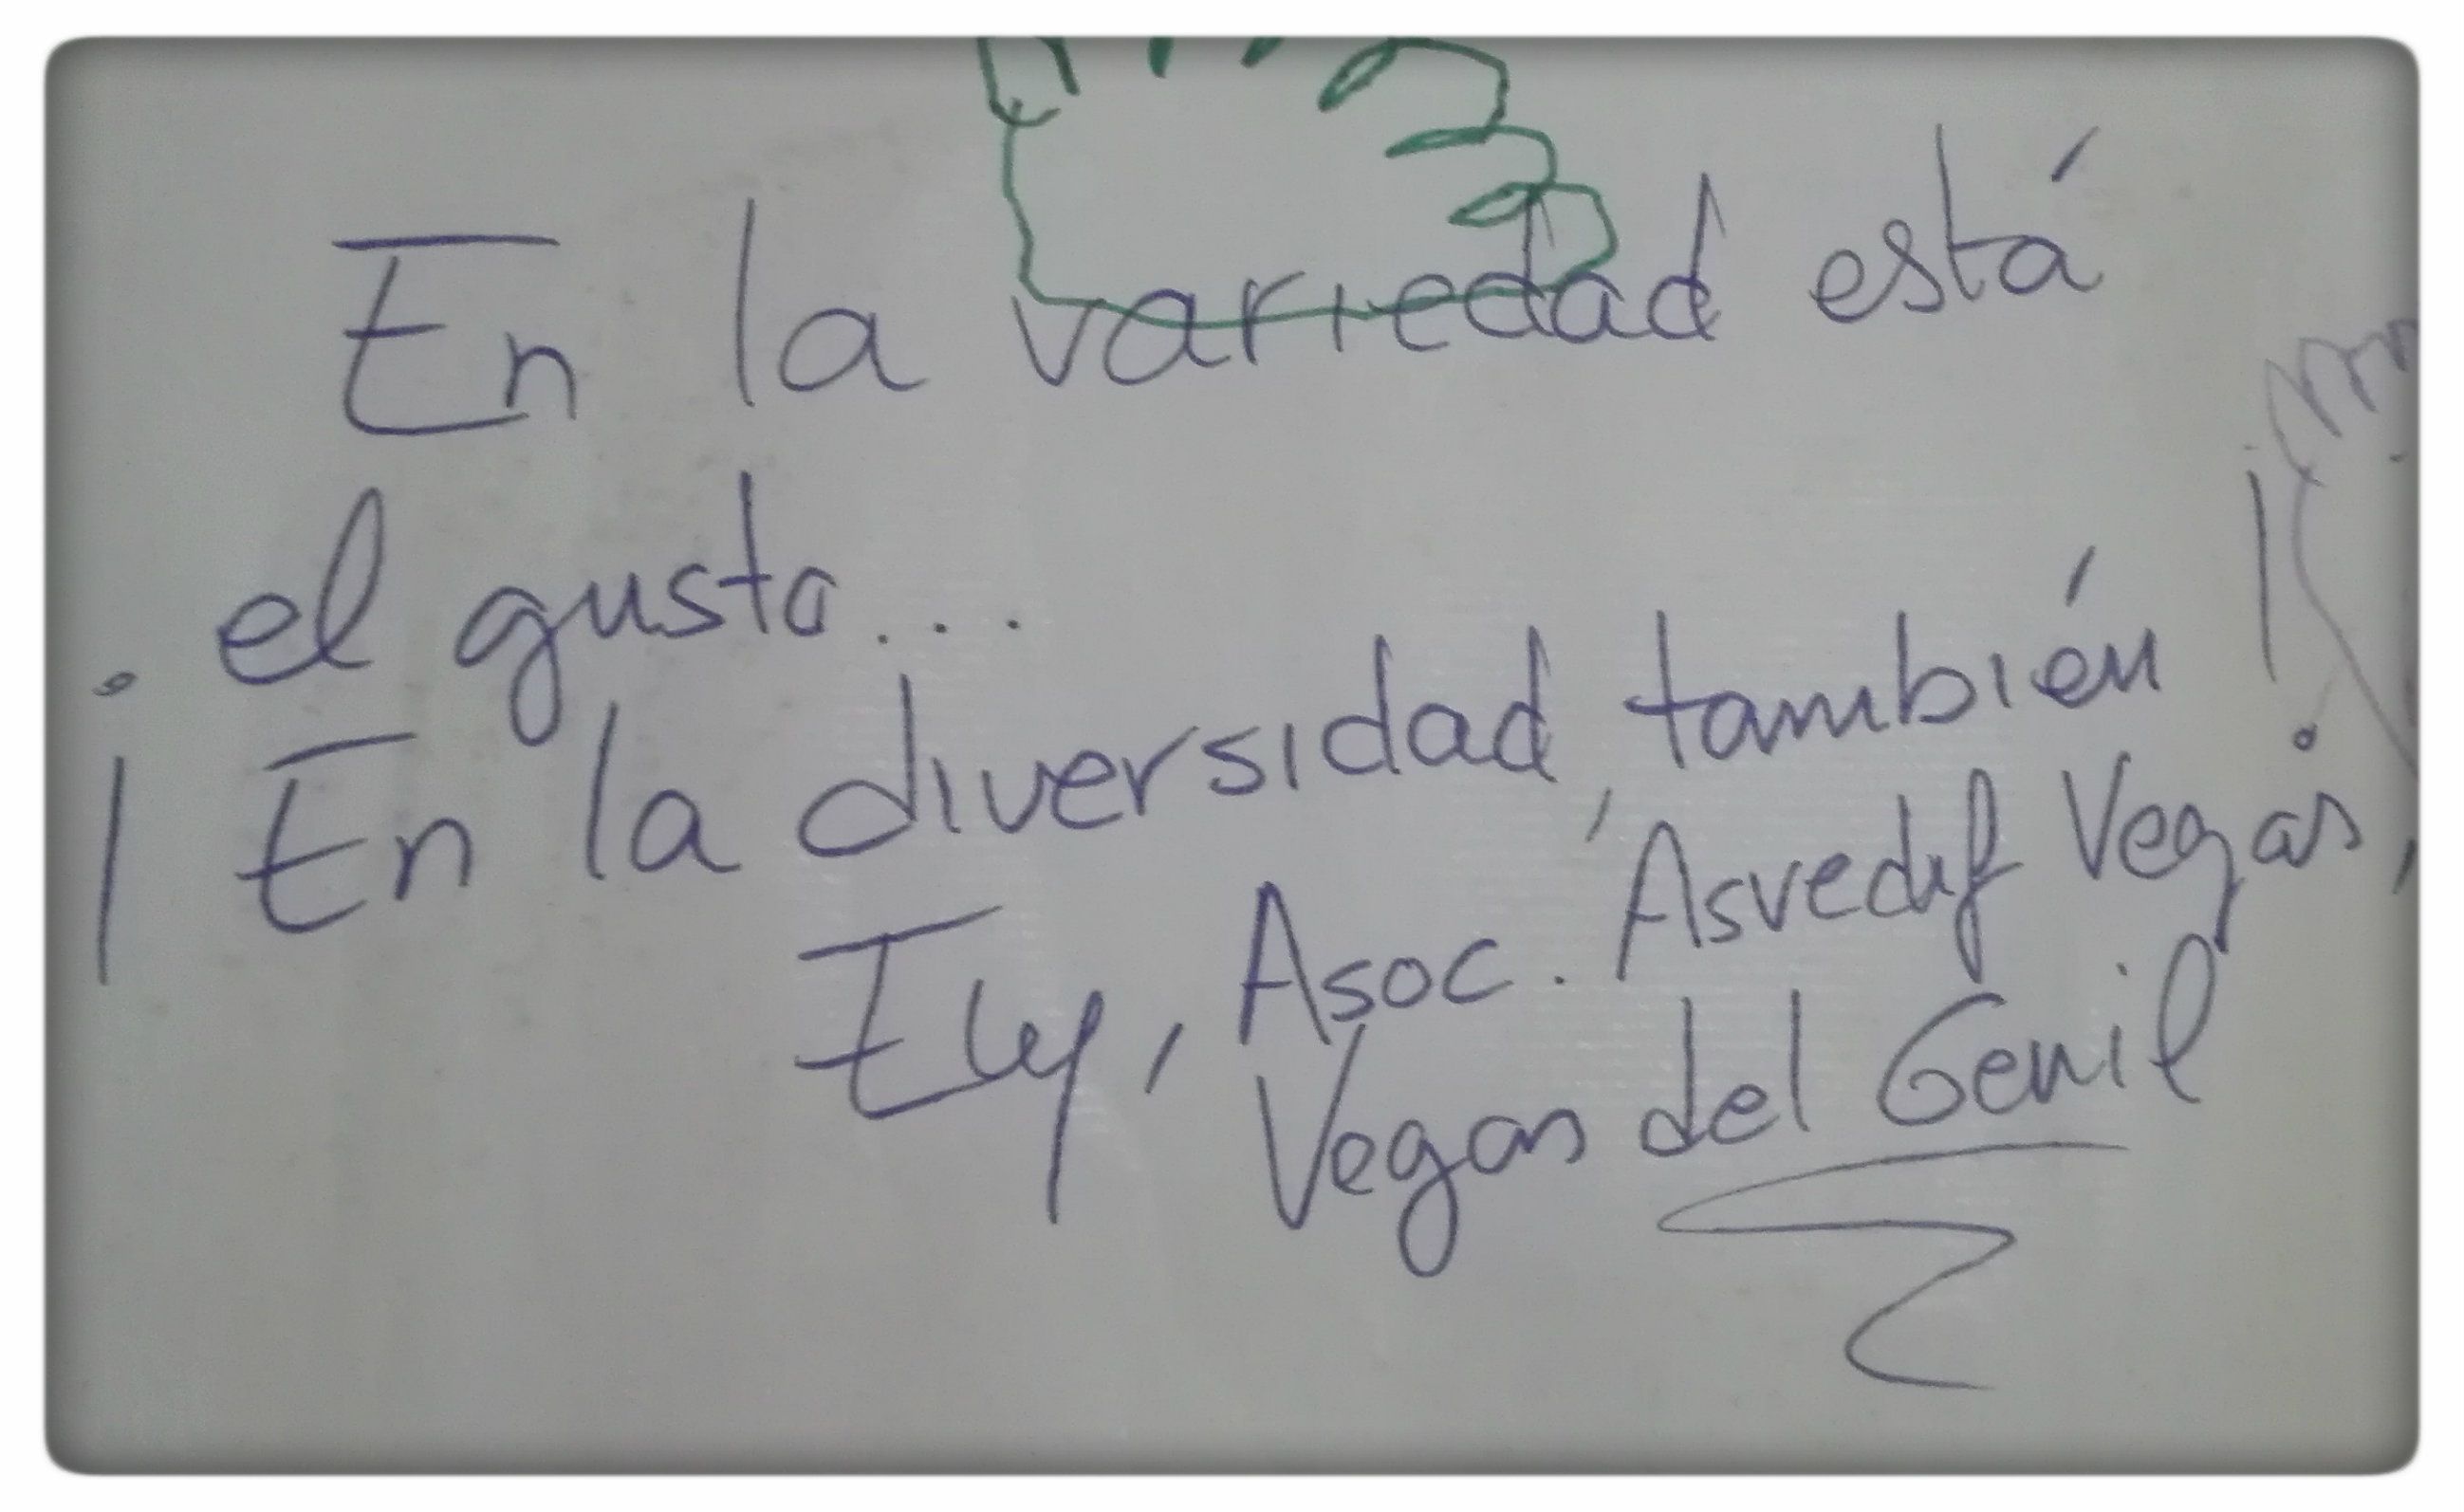 En la variedad está
el gusto...
¡En la diversidad, también!
Ely, Asoc. Asvedif Vegas,
Vegas del Genil